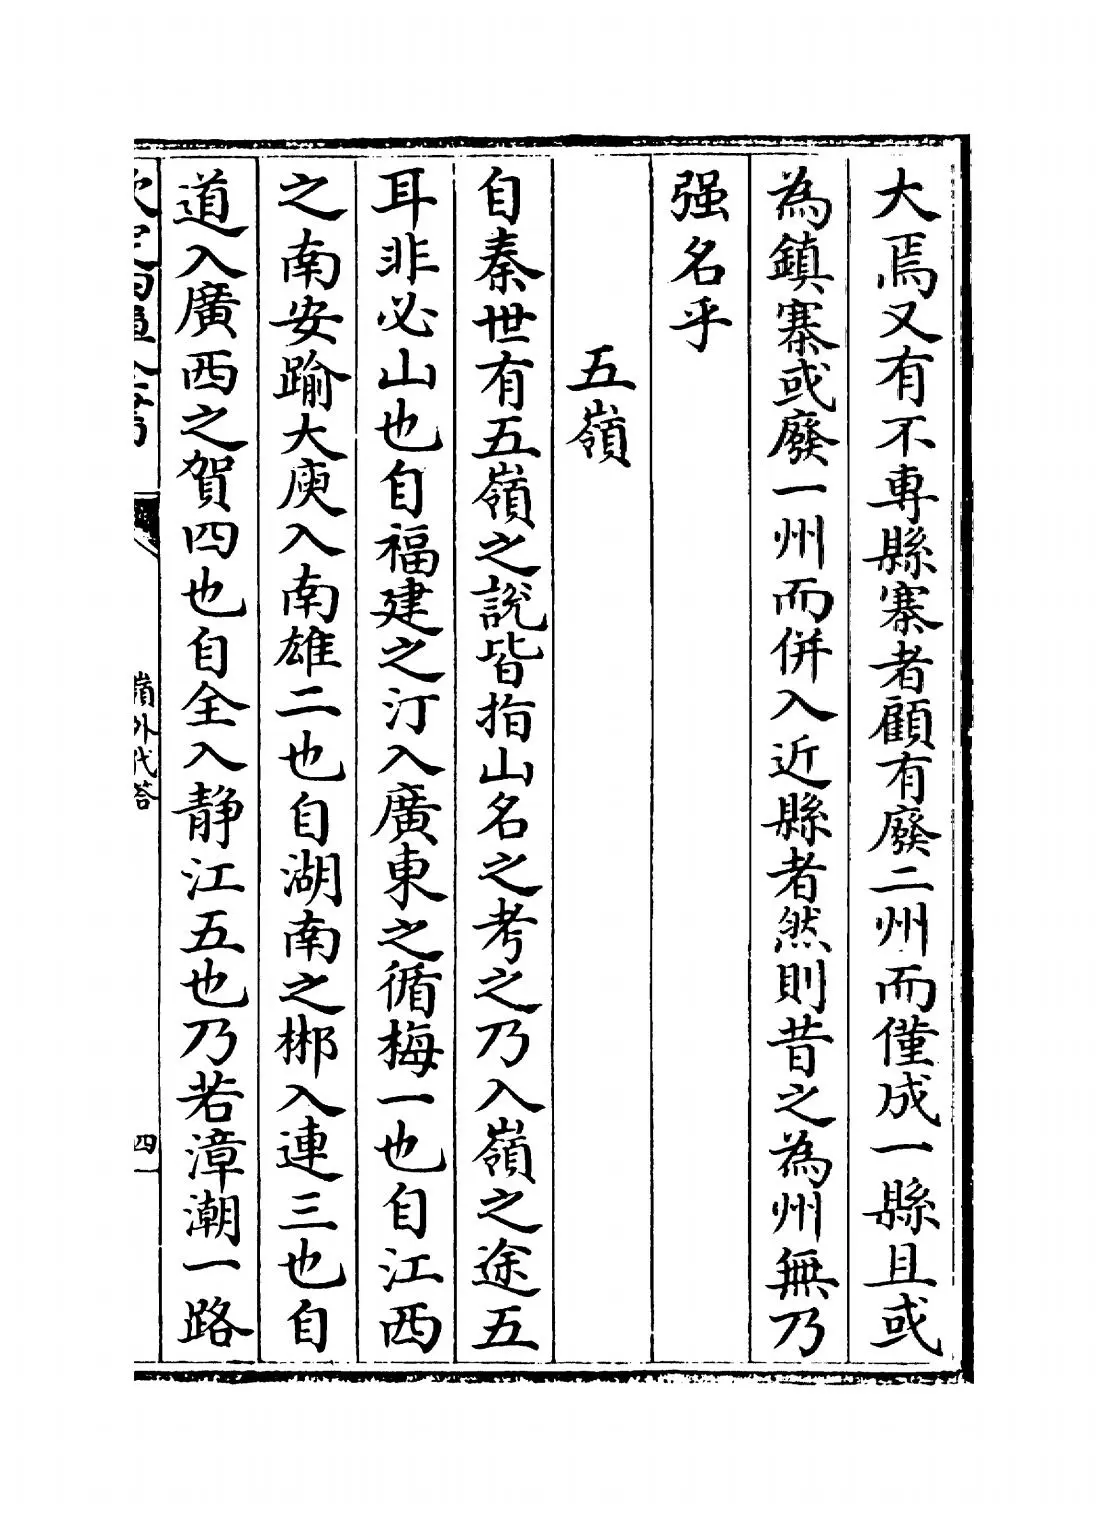 大焉又有不專縣寨者顧有廢二州而僅成一縣且或
為鎮寨或廢一州而併入近縣者然則昔之為州無乃
强名乎
五嶺
自秦世有五嶺之說皆指山名之考之乃入嶺之途五
耳非必山也自福建之汀入廣東之循梅一也自江西
之南安踰大庾入南雄二也自湖南之郴入連三也自
道入廣西之賀四也自全入静江五也乃若漳潮一路
嶺外代答
四